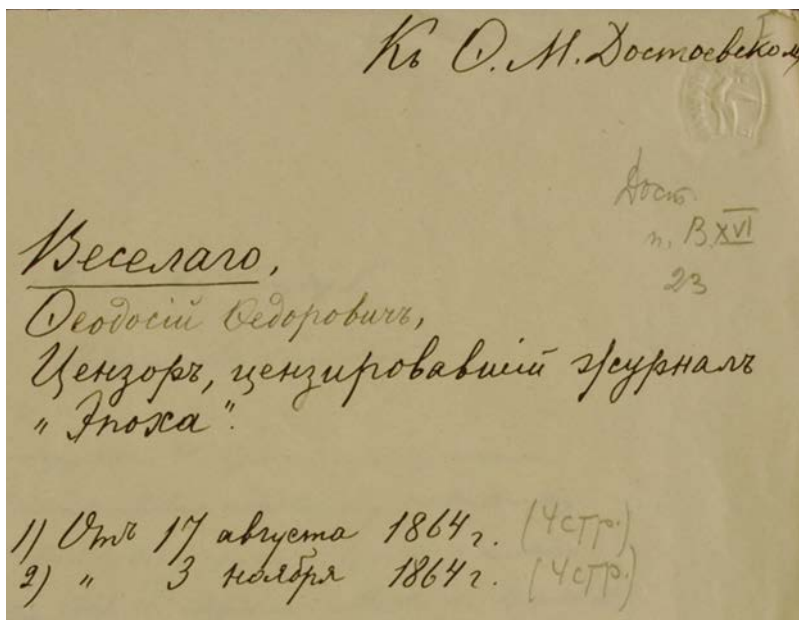 Къ Ѳ. М. Достоевскому
Дост.
п. В. XVI
23
Веселаго,
Ѳеодосій Ѳедоровичъ,
Цензоръ, цензировавшій журналъ
„Эпоха“.
1) Отъ 17 августа 1864 г. (4 стр.)
2) „ 3 ноября 1864 г. (4 стр.)